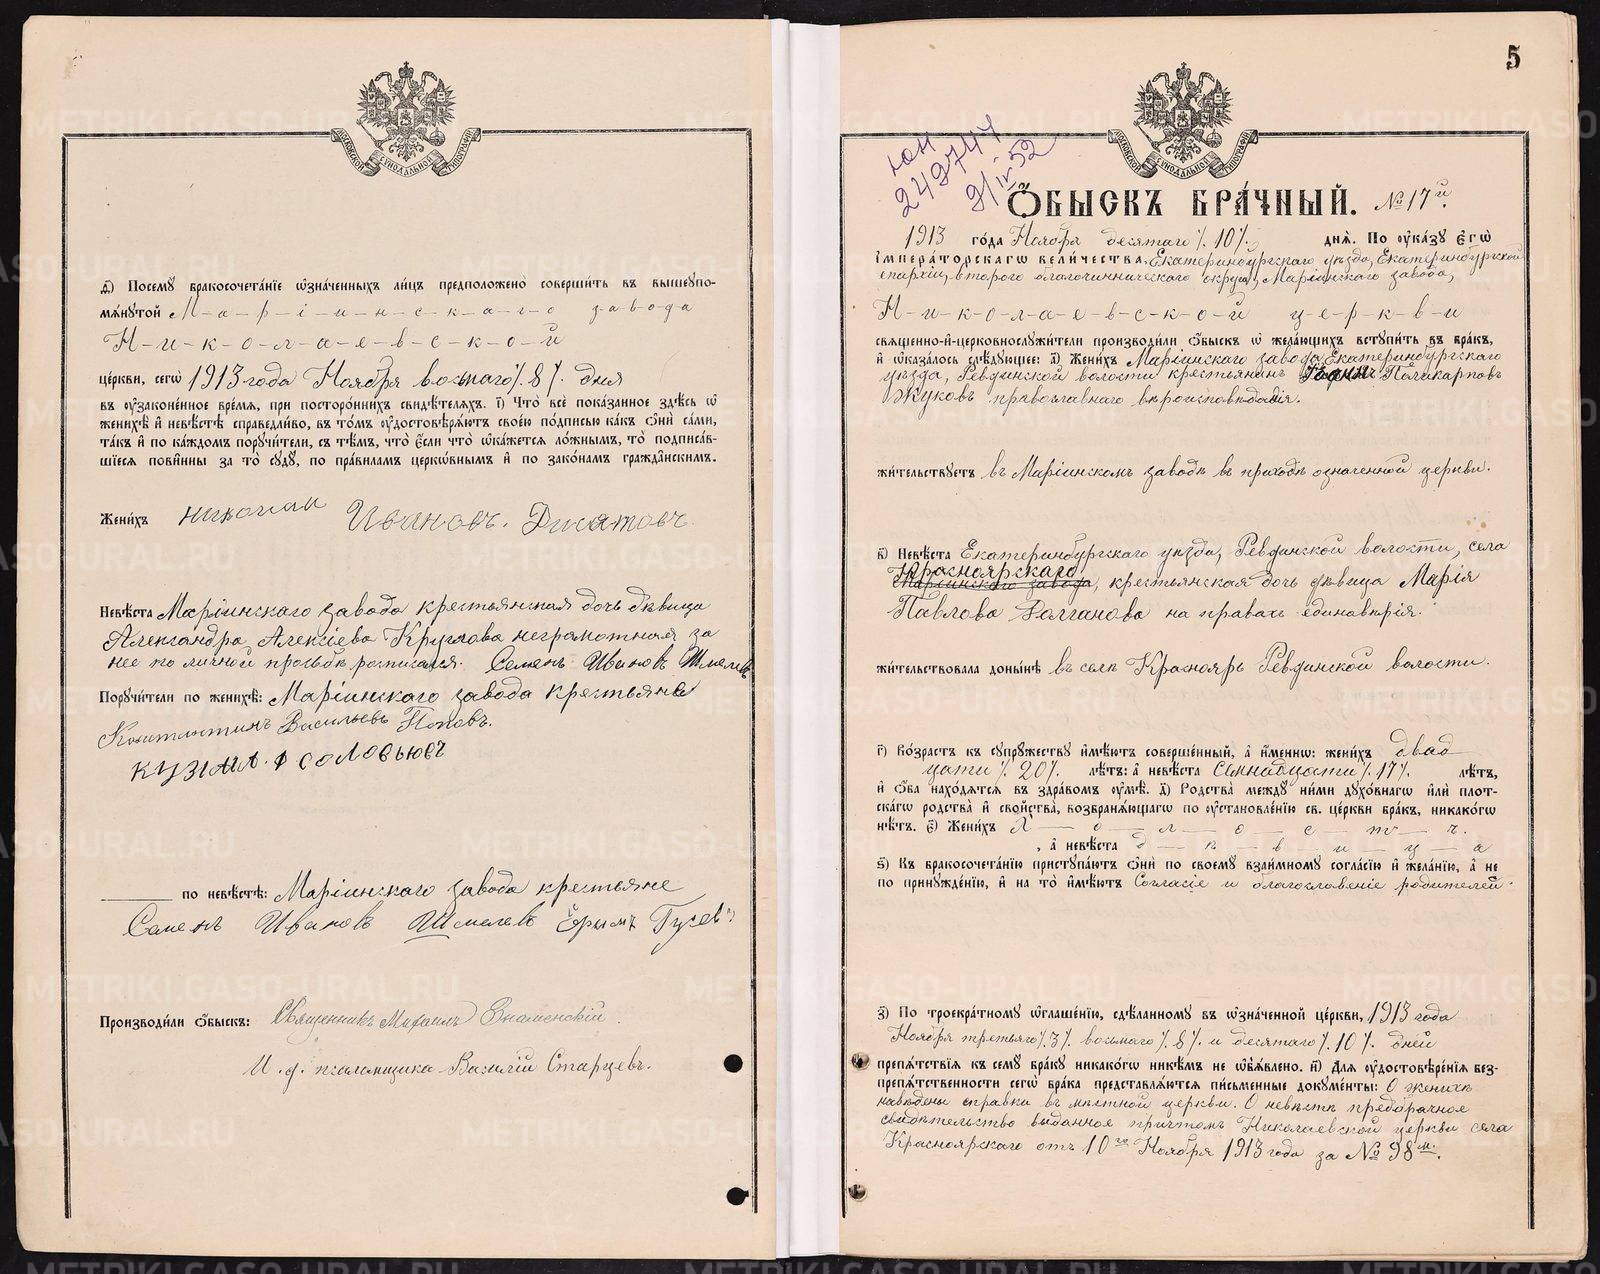 МОСКОВСКОЙ СѴНОДАЛЬНОЙ ТИПОГРАФІИ
Посемꙋ бракосочетаніе ѡзначенныхъ лицъ предположено совершить въ вышеупо-
мѧнутой М-а-р-і-и-н-с-к-а-г-о завода
Н-и-к-о-л-а-е-в-с-к-о-й
церкви, сегѡ 1913 года Ноября восьмаго /. 8 /. дня
въ ᲂузаконенное времѧ, при постороннихъ свидѣтелѧхъ. і) Что все показанное здѣсь ѡ
женихѣ и невѣстѣ справедливо, въ томъ ᲂудостовѣрѧютъ своею подписью какъ ѻни сами,
такъ и по каждомъ порꙋчители, съ тѣмъ, что если что ѡкажетсѧ ложнымъ, то подписав-
шіесѧ повинны за то сꙋдꙋ, по правиламъ церковнымъ и по законамъ гражданскимъ.
Женихъ Николай Ивановъ. Дисятовъ
Невѣста Маріинскаго завода крестьянская дочь дѣвица
Александра Алексіева Круглова неграмотная за
нее по личной просьбѣ росписался. Семенъ Ивановъ Шмелевъ
Порꙋчители по женихѣ: Маріинскаго завода крестьяне
Константинъ Васильевъ Поповъ.
КУЗМА. Ф СОЛОВЬЮВЪ
по невѣстѣ: Маріинскаго завода крестьяне
Семенъ Ивановъ Шмелевъ Ефимъ Гусевъ
Производили ѻбыскъ: Священникъ Михаилъ Знаменскій
И. д. псаломщика Василій Старцевъ.
5
249744
9/IV 52
МОСКОВСКОЙ СѴНОДАЛЬНОЙ ТИПОГРАФІИ
ѺБЫСКЪ БРАЧНЫЙ. № 17й.
1913 года Ноября десятаго /. 10 /. днѧ. По ᲂуказꙋ Егѡ
Императорскагѡ величества, Екатеринбургскаго уѣзда, Екатеринбургской
епархіи, второго благочинническаго округа, Маріинскаго завода,
Н-и-к-о-л-а-е-в-с-к-о-й ц-е-р-к-в-и
свѧщенно-и-церковнослꙋжители производили ѻбыскъ ѡ желающихъ встꙋпить въ бракъ,
и ѡказалось слѣдꙋющее: а) Женихъ Маріинскаго завода Екатеринбургскаго
уѣзда, Ревдинской волости крестьянинъ Іоаннъ Поликарповъ
Жуковъ православнаго вѣроисповѣданія.
жительствꙋетъ въ Маріинскомъ заводѣ въ приходѣ означенной церкви.
в) Невѣста Екатеринбургскаго уѣзда, Ревдинской волости, села
Красноярскаго
Маріинскаго завода, крестьянская дочь дѣвица Марія
Павлова Долганова на правахъ единовѣрія.
жительствовала донынѣ въ селѣ Красноярѣ Ревдинской волости.
г) Возрастъ къ сꙋпрꙋжествꙋ имѣютъ совершенный, а именнѡ: женихъ двад
цати /. 20 /. лѣтъ: а невѣста семнадцати /. 17 /. лѣтъ,
и ѻба находѧтсѧ въ здравомъ ᲂумѣ. д) Родства междꙋ ними дꙋховнагѡ или плот-
скагѡ родства и свойства, возбранѧющагѡ по ᲂустановленію св. церкви бракъ, никакогѡ
нѣтъ. є) Женихъ Х — о — л — о — с — т — ъ.
, а невѣста д — ѣ — в — и — ц — а
ѕ) Къ бракосочетанію пристꙋпаютъ ѻни по своемꙋ взаимномꙋ согласію и желанію, а не
по принꙋжденію, и на то имѣютъ Согласіе и благословеніе родителей.
з) По троекратномꙋ ѡглашенію, сдѣланномꙋ въ ѡзначенной церкви, 1913 года
Ноября третьяго /. 3 /. восьмаго /. 8 /. и десятаго /. 10 /. дней
препѧтствіѧ къ семꙋ бракꙋ никакогѡ никѣмъ не ѡбъѧвлено. и) Для ᲂудостовѣреніѧ без-
препѧтственности сегѡ брака представлѧютсѧ письменные докꙋменты: О женихѣ
наведены справки въ мѣстной церкви. О невѣстѣ предбрачное
свидѣтельство выданное причтомъ Николаевской церкви села
Красноярскаго отъ 10го Ноября 1913 года за № 98м.
METRIKI.GASO-URAL.RU